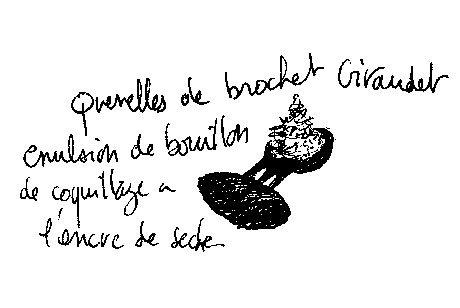 Quenelles de brochet Giraudet
émulsion de bouillon
de coquillage a
l'encre de seche